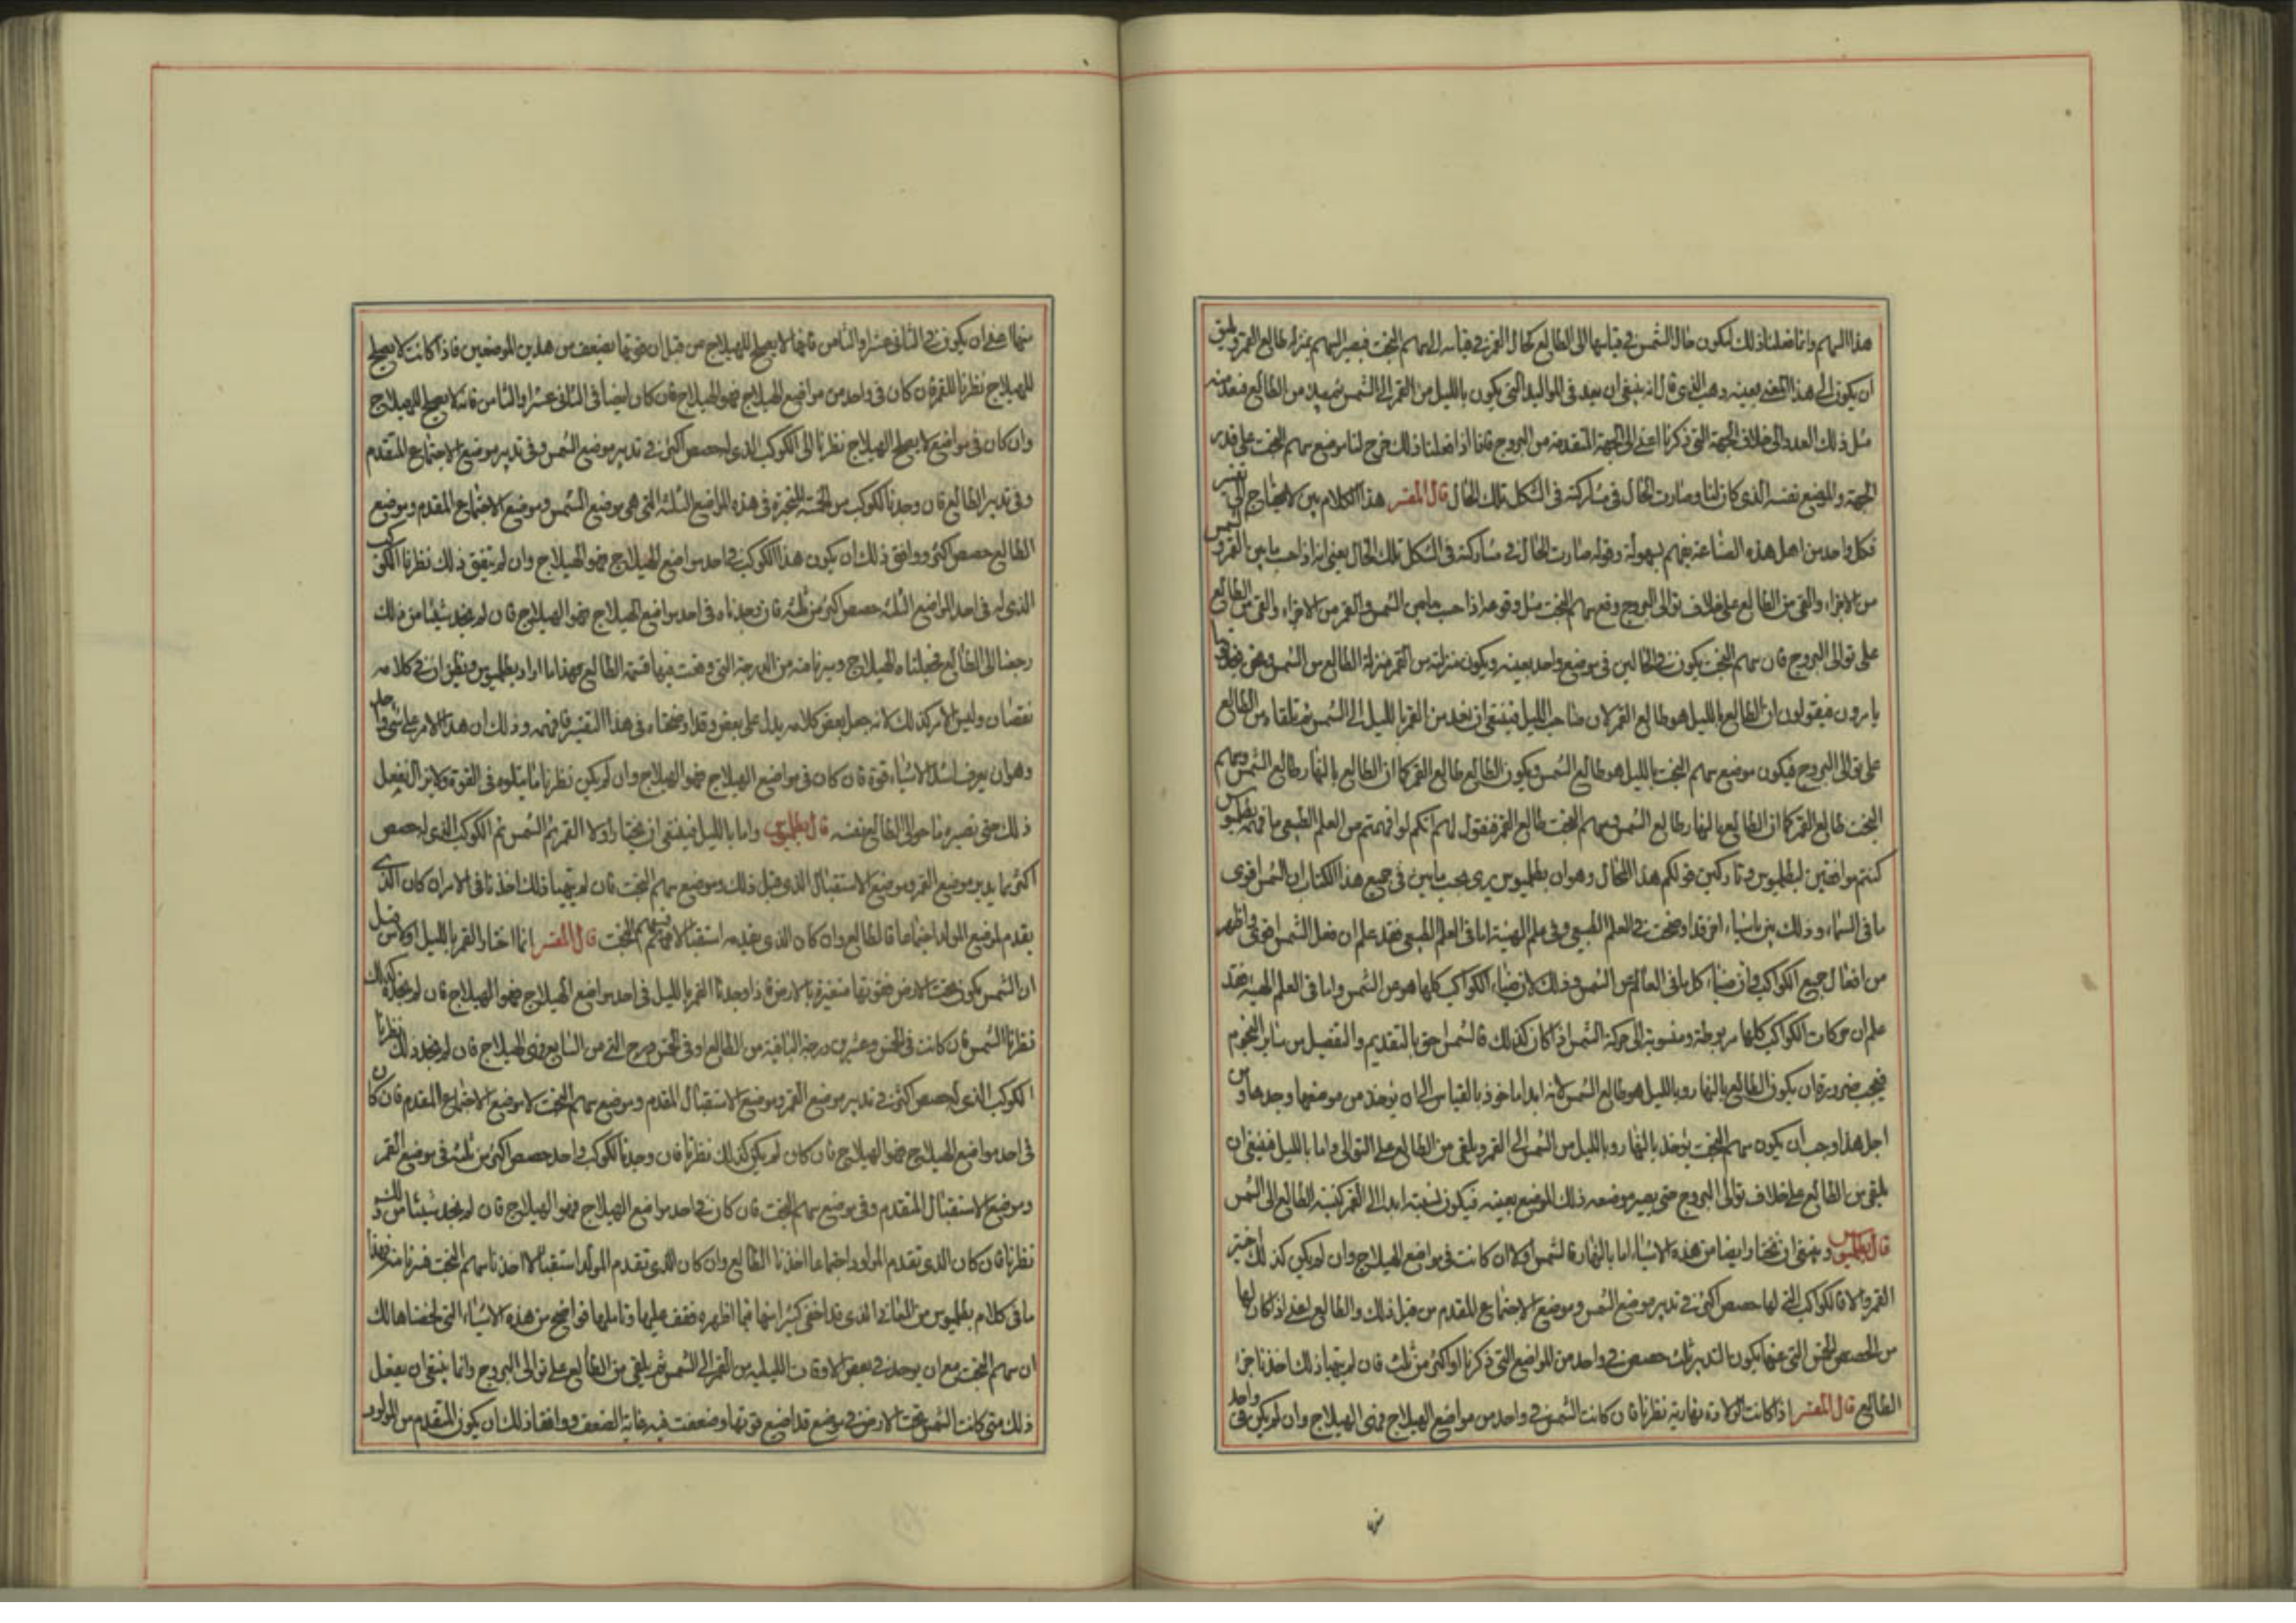 هذا السهم وانما فعلنا ذلك ليكون حال الشمس في قياسها الى الطالع كحال القمر في قياسه الى سهم البخت فيصير السهم بمنزلة طالع القمر ويليق
ان يكون الى هذا المعنى بعينه ذهب الذي قال انه ينبغي ان يعد في المواليد التي يكون بالليل من القمر الى الشمس ثم يبعد من الطالع فيعد منه
مثل ذلك العدد الى خلاف الجهة التي ذكرنا اعني الى الجهة المتقدمة من البروج فانا اذا فعلنا ذلك خرج لنا موضع سهم البخت على قدر
الجهة والموضع نفسه الذي كان لنا وصارت الحال في مشاركته في الشكل تلك الحال قال المفسر هذا الكلام بين لا يحتاج الى تفسير
فكل واحد من اهل هذه الصناعة يفهم بسهولة وقوله صارت الحال في مشاركته في الشكل تلك الحال يعني انه اذا حسب ما بين القمر والشمس
من الاجزاء والقي من الطالع على خلاف توالي البروج وقع سهم البخت مثل وقوعه اذا حسب ما بين الشمس والقمر من الاجزاء والقي من الطالع
على توالي البروج فان سهم البخت يكون في الحالين في موضع واحد بعينه ويكون منزلته من القمر منزلة الطالع من الشمس
فيقولون ان الطالع بالليل هو طالع القمر لان صاحب الليل فينبغي ان نعد من القمر بالليل الى الشمس ثم تلقاه من الطالع
على توالي البروج فيكون موضع سهم البخت بالليل هو طالع الشمس ويكون الطالع طالع القمر كما ان الطالع بالنهار طالع الشمس وسهم
البخت طالع القمر كما ان الطالع بالنهار طالع الشمس وسهم البخت طالع القمر فنقول لهم انكم لو فهمتم من العلم الطبيعي ما فهمه بطلميوس
كنتم موافقين لبطلميوس وتاركين قولكم هذا المحال وهو ان بطلميوس يرى بحسب ما بين في جميع هذا الكتاب ان الشمس اقوى
ما في السماء وذلك بين باشياء اخر قد اوضحت في العلم الطبيعي وفي علم الهيئة اما في العلم الطبيعي فقد علم ان فعل الشمس اقوى واظهر
من افعال جميع الكواكب وان ضياء كل ما في العالم من الشمس وذلك لان ضياء الكواكب كلها هو من الشمس واما في العلم الهيئة فقد
علم ان حركات الكواكب كلها مربوطة ومنسوبة الى حركة الشمس اذا كان كذلك فالشمس احق بالتقديم والتفضيل من سائر النجوم
فيجب ضرورة ان يكون الطالع بالنهار وبالليل هو طالع الشمس لانه ابدا ماخوذ بالقياس الى ان يوخذ من موضعها وحدها ومن
اجل هذا وجب ان يكون سهم البخت يؤخذ بالنهار وبالليل من الشمس الى القمر ويلقى من الطالع على التوالي واما بالليل فينبغي ان
يلقى من الطالع على خلاف توالي البروج حتى يصير موضعه ذلك الموضع بعينه فيكون نسبته ابدا الى القمر كنسبة الطالع الى الشمس
قال بطلميوس وينبغي ان نختار ايضا من هذه الاشياء اما بالنهار فالشمس اولا ان كانت في مواضع الهيلاج وان لم يكن كذلك اختير
القمر والا فالكواكب التي لها حصص اكثر في تدبير موضع الشمس وموضع الاجتماع المتقدم من قبل ذلك والطالع يعني اذا كان لها
من الحصص الخمس التي عنها يكون التدبير ثلث حصص في واحد من المواضع التي ذكرنا او اكثر من ثلث فان لم يتهيا ذلك اخذنا جزء
الطالع قال المفسر اذا كانت الولادة نهارية نظرنا فان كانت الشمس في واحد من مواضع الهيلاج فهي الهيلاج وان لم يكن في واحد
منها اعني ان يكون في الثاني عشر او الثامن فانها لا يصلح للهيلاج من قبل ان قوتها يضعف من هذين الموضعين فاذا كانت لا يصلح
للهيلاج نظرنا للقمر فان كان في واحد من مواضع الهيلاج فهو الهيلاج فان كان ايضا في الثاني عشر او الثامن فانه لا يصلح للهيلاج
وان كان في مواضع لا يصلح الهيلاج نظرنا الى الكوكب الذي له حصص اكثر في تدبير موضع الشمس وفي تدبير موضع الاجتماع المتقدم
وفي تدبير الطالع فان وجدنا لكوكب من الخمسة المتحيرة في هذه المواضع الثلثة التي هي موضع الشمس وموضع الاجتماع المقدم وموضع
الطالع حصص اكثر ووافق ذلك ان يكون هذا الكوكب في احد مواضع الهيلاج فهو الهيلاج وان لم يتفق ذلك نظرنا الكوكب
الذي له في احد المواضع الثلثة حصص اكثر من ثلثة فان وجدناه في احد مواضع الهيلاج فهو الهيلاج فان لم نجد شيئا من ذلك
رجعنا الى الطالع فجعلناه الهيلاج وسيرنا منه من الدرجة التي وقعت فيها قسمة الطالع فهذا ما اراد بطلميوس ويظن ان في كلامه
نقصان وليس الامر كذلك لانه جعل بعض كلامه يدل على بعض وقد اوضحناه في هذا التفسير فافهمه وذلك ان هذا الامر على شيء واحد
وهو ان يعرف اشد الاشياء قوة فان كان في مواضع الهيلاج فهو الهيلاج وان لم يكن نظرنا ما يتلوه في القوة ولا يزال يفعل
ذلك حتى نصير باخره الى الطالع نفسه قال بطلميوس واما بالليل فينبغي ان نختار اولا القمر ثم الشمس ثم الكوكب الذي له حصص
اكثر بما يدبر موضع القمر وموضع الاستقبال الذي قبل ذلك وموضع سهم البخت فان لم يتهيا ذلك اخذنا في الامر ان كان الذي
يقدم لموضع المولد اجتماعا فالطالع وان كان الذي يقدمه استقبالا فسهم البخت قال المفسر انما اختار القمر بالليل اولا من قبل
ان الشمس يكون تحت الارض فقوتها مستترة بالارض فاذا وجدنا القمر بالليل في احد مواضع الهيلاج فهو الهيلاج فان لم نجده كذلك
نظرنا الشمس فان كانت في الخمس وعشرين درجة الباقية من الطالع او في الخمس درج التي من السابع فهي الهيلاج فان لم نجد ذلك نظرنا
الكوكب الذي له حصص اكثر في تدبير موضع القمر وموضع الاستقبال المقدم وموضع سهم البخت لا موضع الاجتماع المقدم فان كان
في احد مواضع الهيلاج فهو الهيلاج فان كان لم يكن كذلك نظرنا فان وجدنا لكوكب واحد حصص اكثر من ثلثة في موضع القمر
وموضع الاستقبال المتقدم وفي موضع سهم البخت فان كان في احد مواضع الهيلاج فهو الهيلاج فان لم نجد شيئا من ذلك
نظرنا فان كان الذي تقدم المولود اجتماعا اخذنا الطالع وان كان الذي تقدم المولد استقبالا اخذنا سهم البخت فسيرنا منه فهذا
ما في كلام بطلميوس من المعاني الذي قد اخفى كثيرا منها فيما اظهره فقف عليها وتاملها فواضح من هذه الاشياء التي لخصناها لك
ان سهم البخت مع ان يوخذ في بعض الاوقات الليلية من القمر الى الشمس ثم يلقى من الطالع على توالي البروج وانما ينبغي ان يفعل
ذلك متى كانت الشمس تحت الارض في موضع قد اضيع قوتها وضعفت فيه غاية الضعف ووافقنا ذلك ان يكون المتقدم من المولود